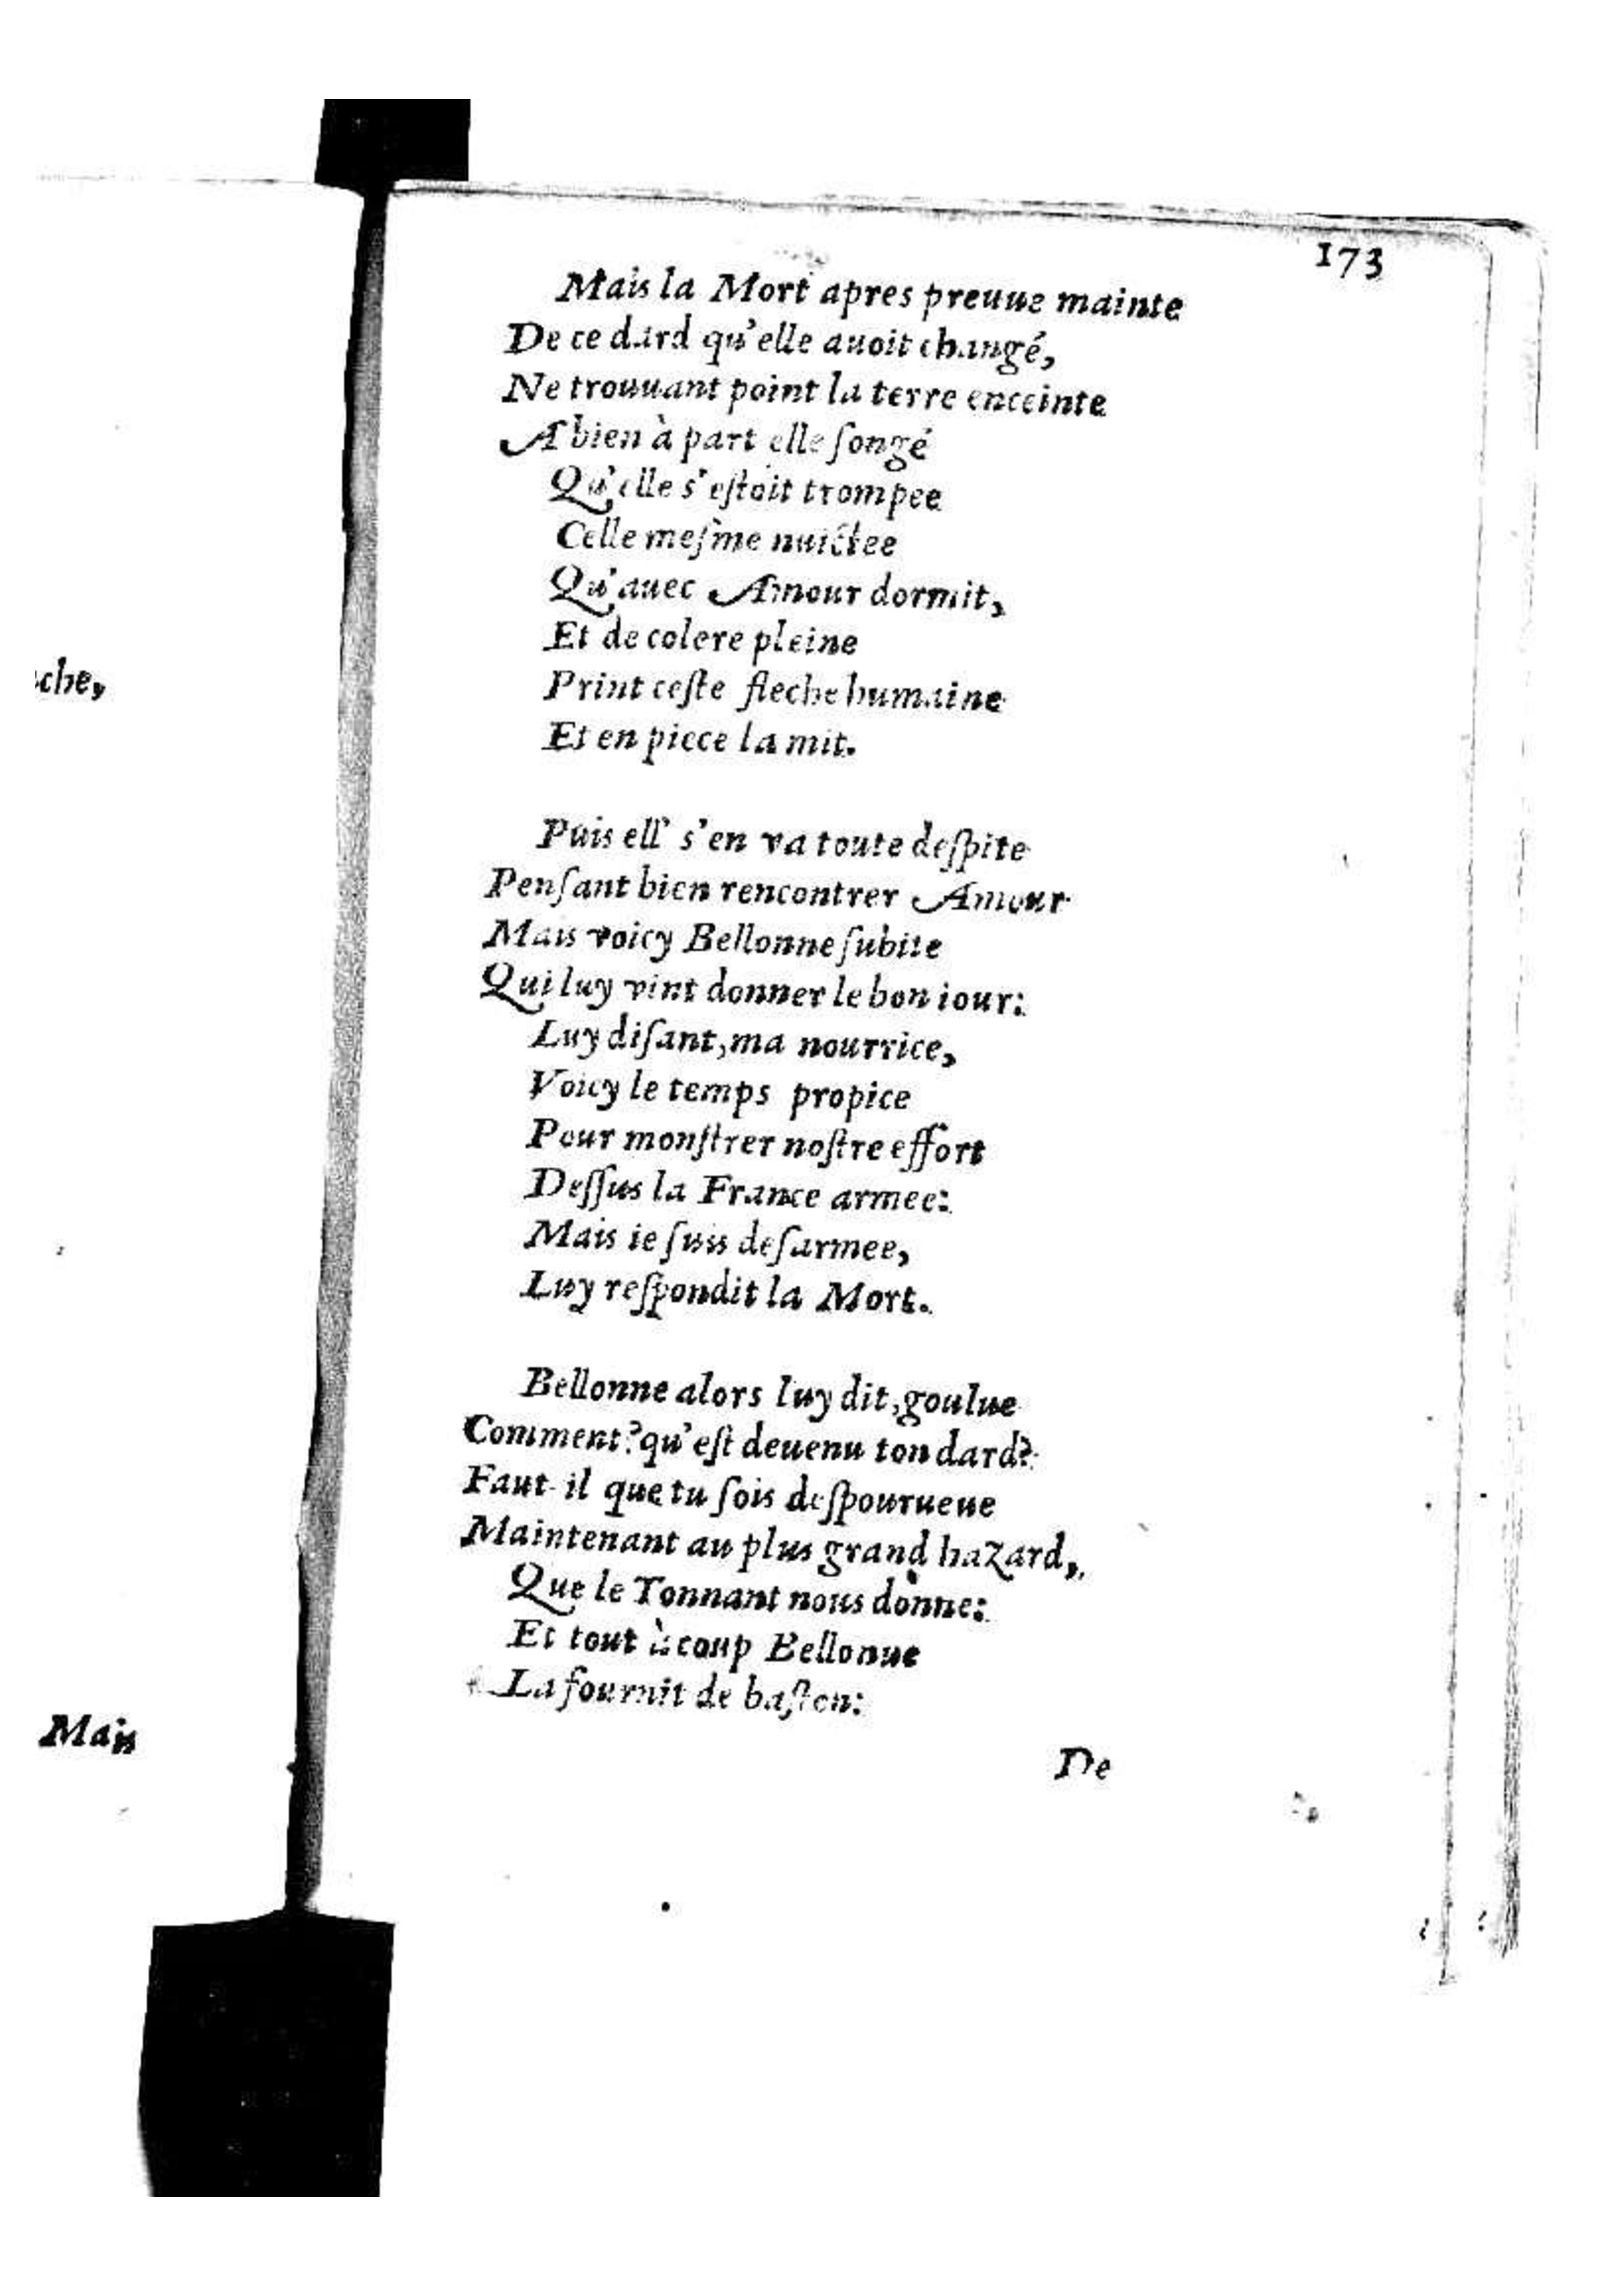 173
Mais la Mort apres preuue mainte
De ce dard qu'elle auoit changé,
Ne trouuant point la terre enceinte
A bien à part elle ſongé
Qu'elle s'eſtoit trompee
Celle meſme nuictee
Qu'auec Amour dormit,
Et de colere pleine
Print ceſte fleche humaine
Et en piece la mit.
Puis ell' s'en va toute deſpite
Penſant bien rencontrer Amour
Mais voicy Bellonne ſubite
Qui luy vint donner le bon iour:
Luy diſant, ma nourrice,
Voicy le temps propice
Pour monſtrer noſtre effort
Deſſus la France armee:
Mais ie ſuis deſarmee,
Luy reſpondit la Mort.
Bellonne alors luy dit, goulue
Comment? qu'eſt deuenu ton dard?
Faut-il que tu ſois deſpourueue
Maintenant au plus grand hazard,
Que le Tonnant nous donne:
Et tout à coup Bellonne
La fournit de baſton:
De
che,
Mais